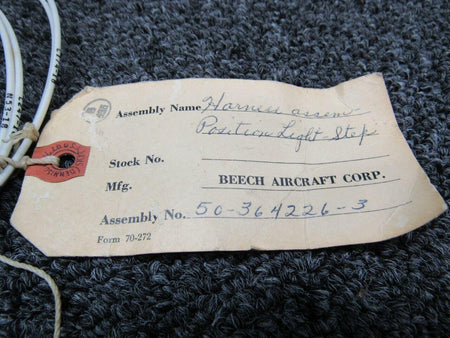 Assembly Name Harness assem
Position Light Step
Stock No.
Mfg. BEECH AIRCRAFT CORP.
Assembly No. 50-364226-3
Form 70-272
DENNISON